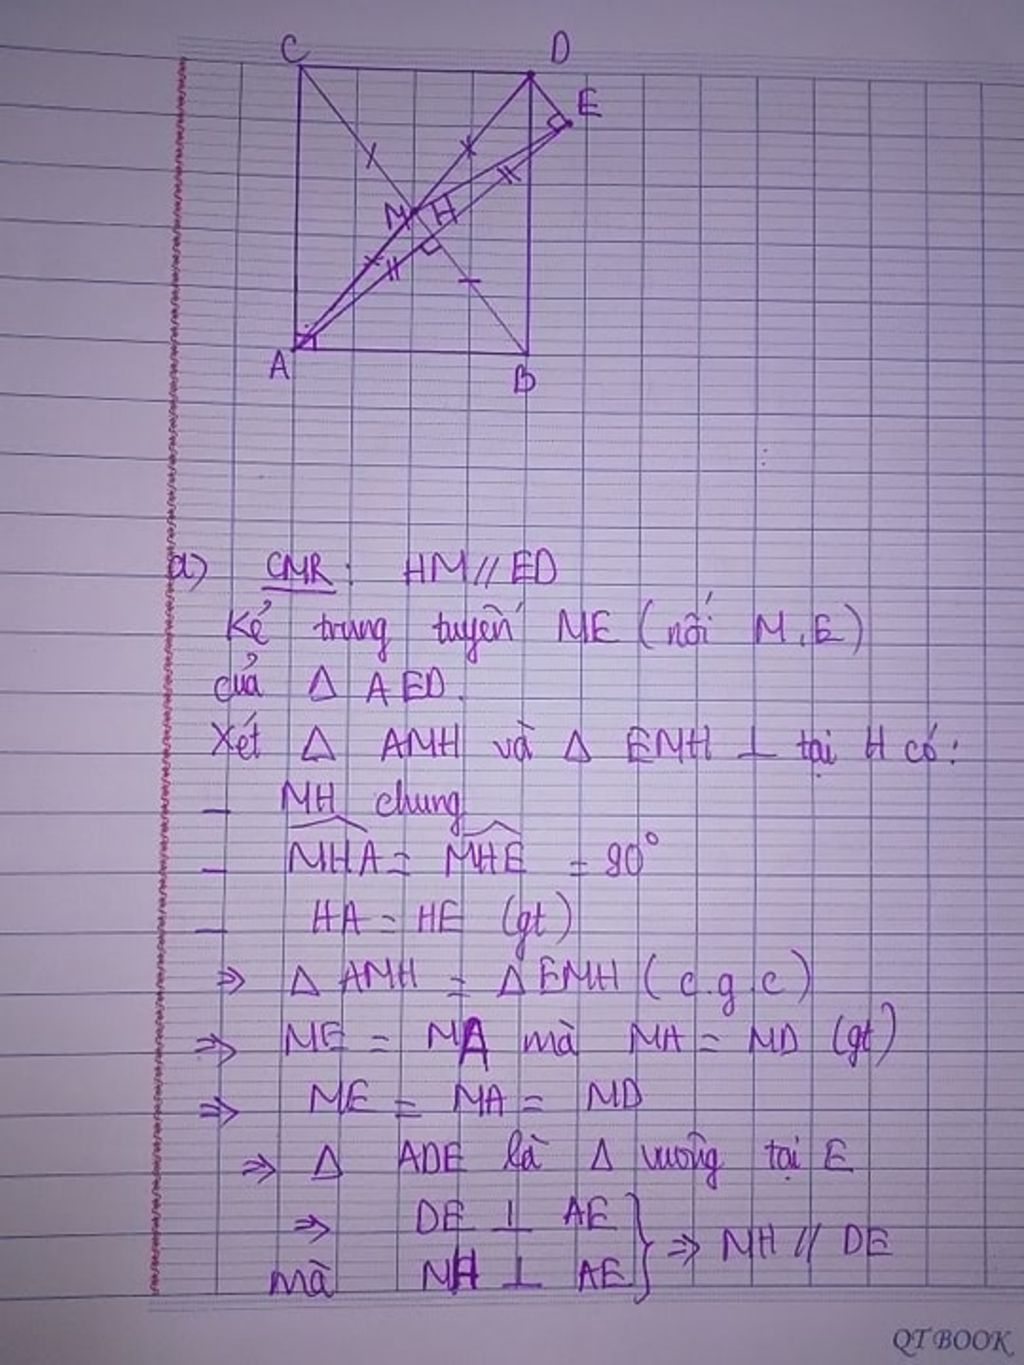 C
D
E
M
H
A
B
a) CMR: HM // ED
Kẻ trung tuyến ME (nối M, E)
của Δ AED.
Xét Δ AMH và Δ EMH ⊥ tại H có:
– MH chung
– MHA = MHE = 90°
– HA = HE (gt)
⇒ Δ AMH = Δ EMH (c.g.c)
⇒ ME = MA mà MA = MD (gt)
⇒ ME = MA = MD
⇒ Δ ADE là Δ vuông tại E
⇒ DE ⊥ AE
mà MH ⊥ AE } ⇒ MH // DE
QTBOOK